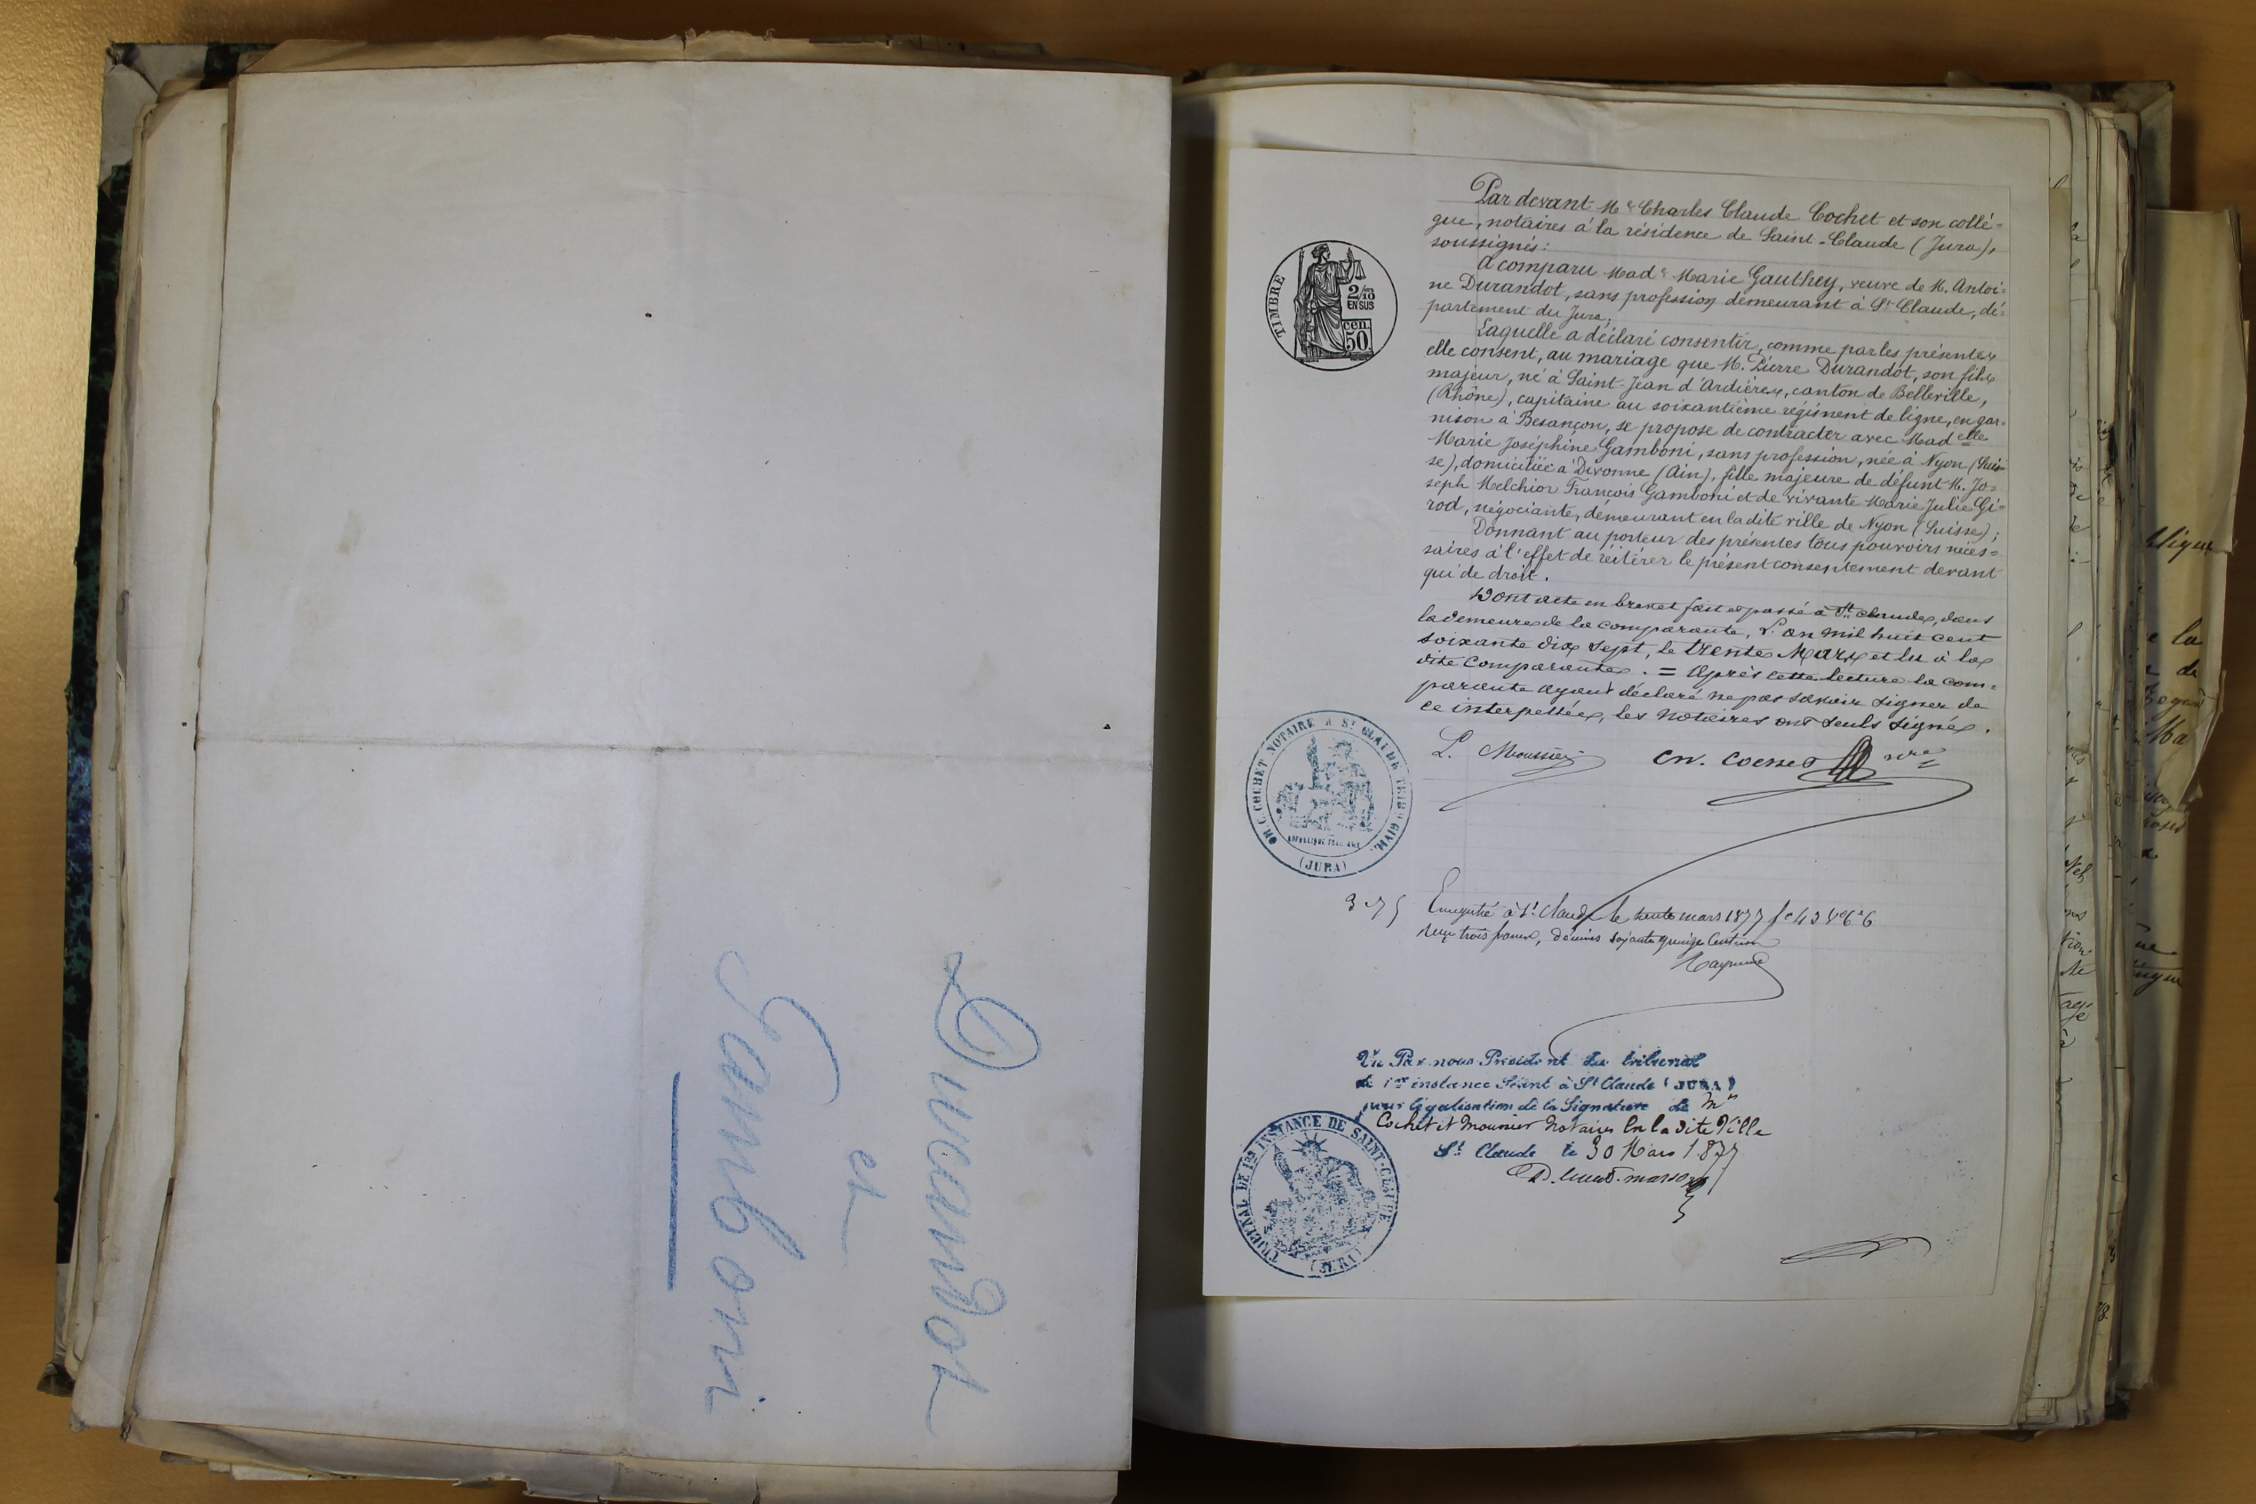 Durandot
et
Gamboni
Par devant Mᵉ Charles Claude Cochet et son collè=
gue, notaires à la résidence de Saint-Claude (Jura),
soussignés :
A comparu Madᵉ Marie Gauthey, veuve de M. Antoi=
ne Durandot, sans profession demeurant à Sᵗ Claude, dé=
partement du Jura,
Laquelle a déclaré consentir, comme par les présentes
elle consent, au mariage que M. Pierre Durandot, son fils
majeur, né à Saint-Jean d'Ardières, canton de Belleville,
(Rhône), capitaine au soixantième régiment de ligne, en gar=
nison à Besançon, se propose de contracter avec Madelle
Marie Joséphine Gamboni, sans profession, née à Nyon (Suis=
se), domiciliée à Divonne (Ain), fille majeure de défunt M. Jo=
seph Melchior François Gamboni et de vivante Marie Julie Gi=
rod, négociante, demeurant en la dite ville de Nyon (Suisse) ;
Donnant au porteur des présentes tous pouvoirs néces=
saires à l'effet de réitérer le présent consentement devant
qui de droit.
Dont acte en brevet fait et passé à Sᵗ Claude, dans
la demeure de la comparante, L'an mil huit cent
soixante dix sept, le trente Mars et lu à la
dite Comparante. = Après cette lecture la com=
parante ayant déclaré ne pas savoir signer de
ce interpellée, les Notaires ont seuls signé.
TIMBRE
2/10
EN SUS
cen.
50.
L. Mounier Ch. Cochet nre
CH. C. COCHET NOTAIRE A Sᵗ CLAUDE TRIB. CIVIL
(JURA)
3.75
Enregistré à Sᵗ Claude le trente mars 1877 fº 43 vº cº 6
Reçu trois francs, décimes soixante quinze centimes
Vu Par nous Président du tribunal
de 1ère instance Séant à Sᵗ Claude (JURA)
pour légalisation de la Signature de Mes
Cochet et Mounier Notaires En la dite Ville
Sᵗ Claude le 30 Mars 1877
TRIBUNAL DE 1RE INSTANCE DE SAINT-CLAUDE
(JURA)